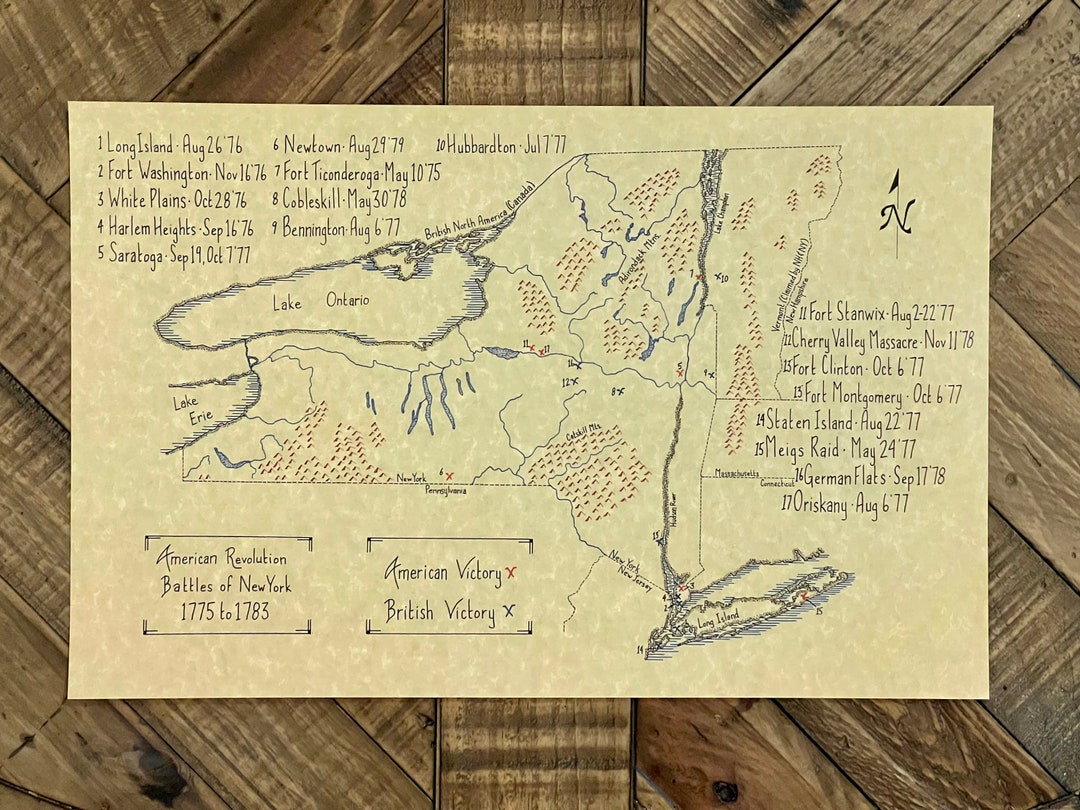 1 Long Island · Aug 26 '76
2 Fort Washington · Nov 16 '76
3 White Plains · Oct 28 '76
4 Harlem Heights · Sep 16 '76
5 Saratoga · Sep 19, Oct 7 '77
6 Newtown · Aug 29 '79
7 Fort Ticonderoga · May 10 '75
8 Cobleskill · May 30 '78
9 Bennington · Aug 6 '77
10 Hubbardton · Jul 7 '77
British North America (Canada)
Lake Champlain
N
Adirondack Mtns.
7
10
Lake Ontario
Vermont (Claimed by NH (NY)
New Hampshire
11 Fort Stanwix · Aug 2-22 '77
12 Cherry Valley Massacre · Nov 11 '78
13 Fort Clinton · Oct 6 '77
13 Fort Montgomery · Oct 6 '77
14 Staten Island · Aug 22 '77
15 Meigs Raid · May 24 '77
16 German Flats · Sep 17 '78
17 Oriskany · Aug 6 '77
11
17
16
12
8
5
9
Lake
Erie
Catskill Mts.
6
New York
Pennsylvania
Massachusetts
Connecticut
Hudson River
13
New York
New Jersey
3
4
2
1
Long Island
15
14
American Revolution
Battles of New York
1775 to 1783
American Victory X
British Victory X